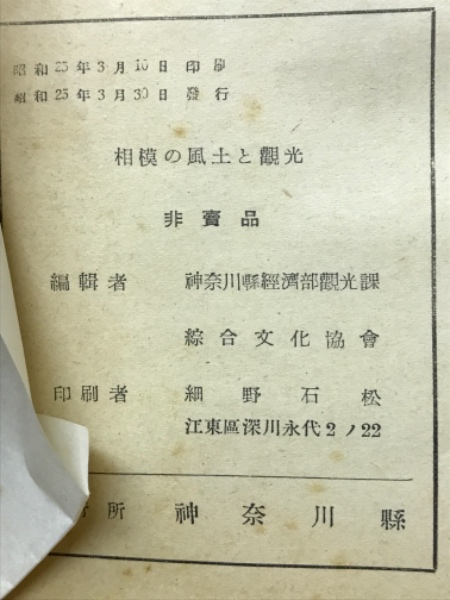 昭和25年3月10日 印刷
昭和25年3月30日 發行
相模の風土と觀光
非賣品
編輯者 神奈川縣經濟部觀光課
綜合文化協會
印刷者 細野石松
江東區深川永代2ノ22
行所 神奈川縣